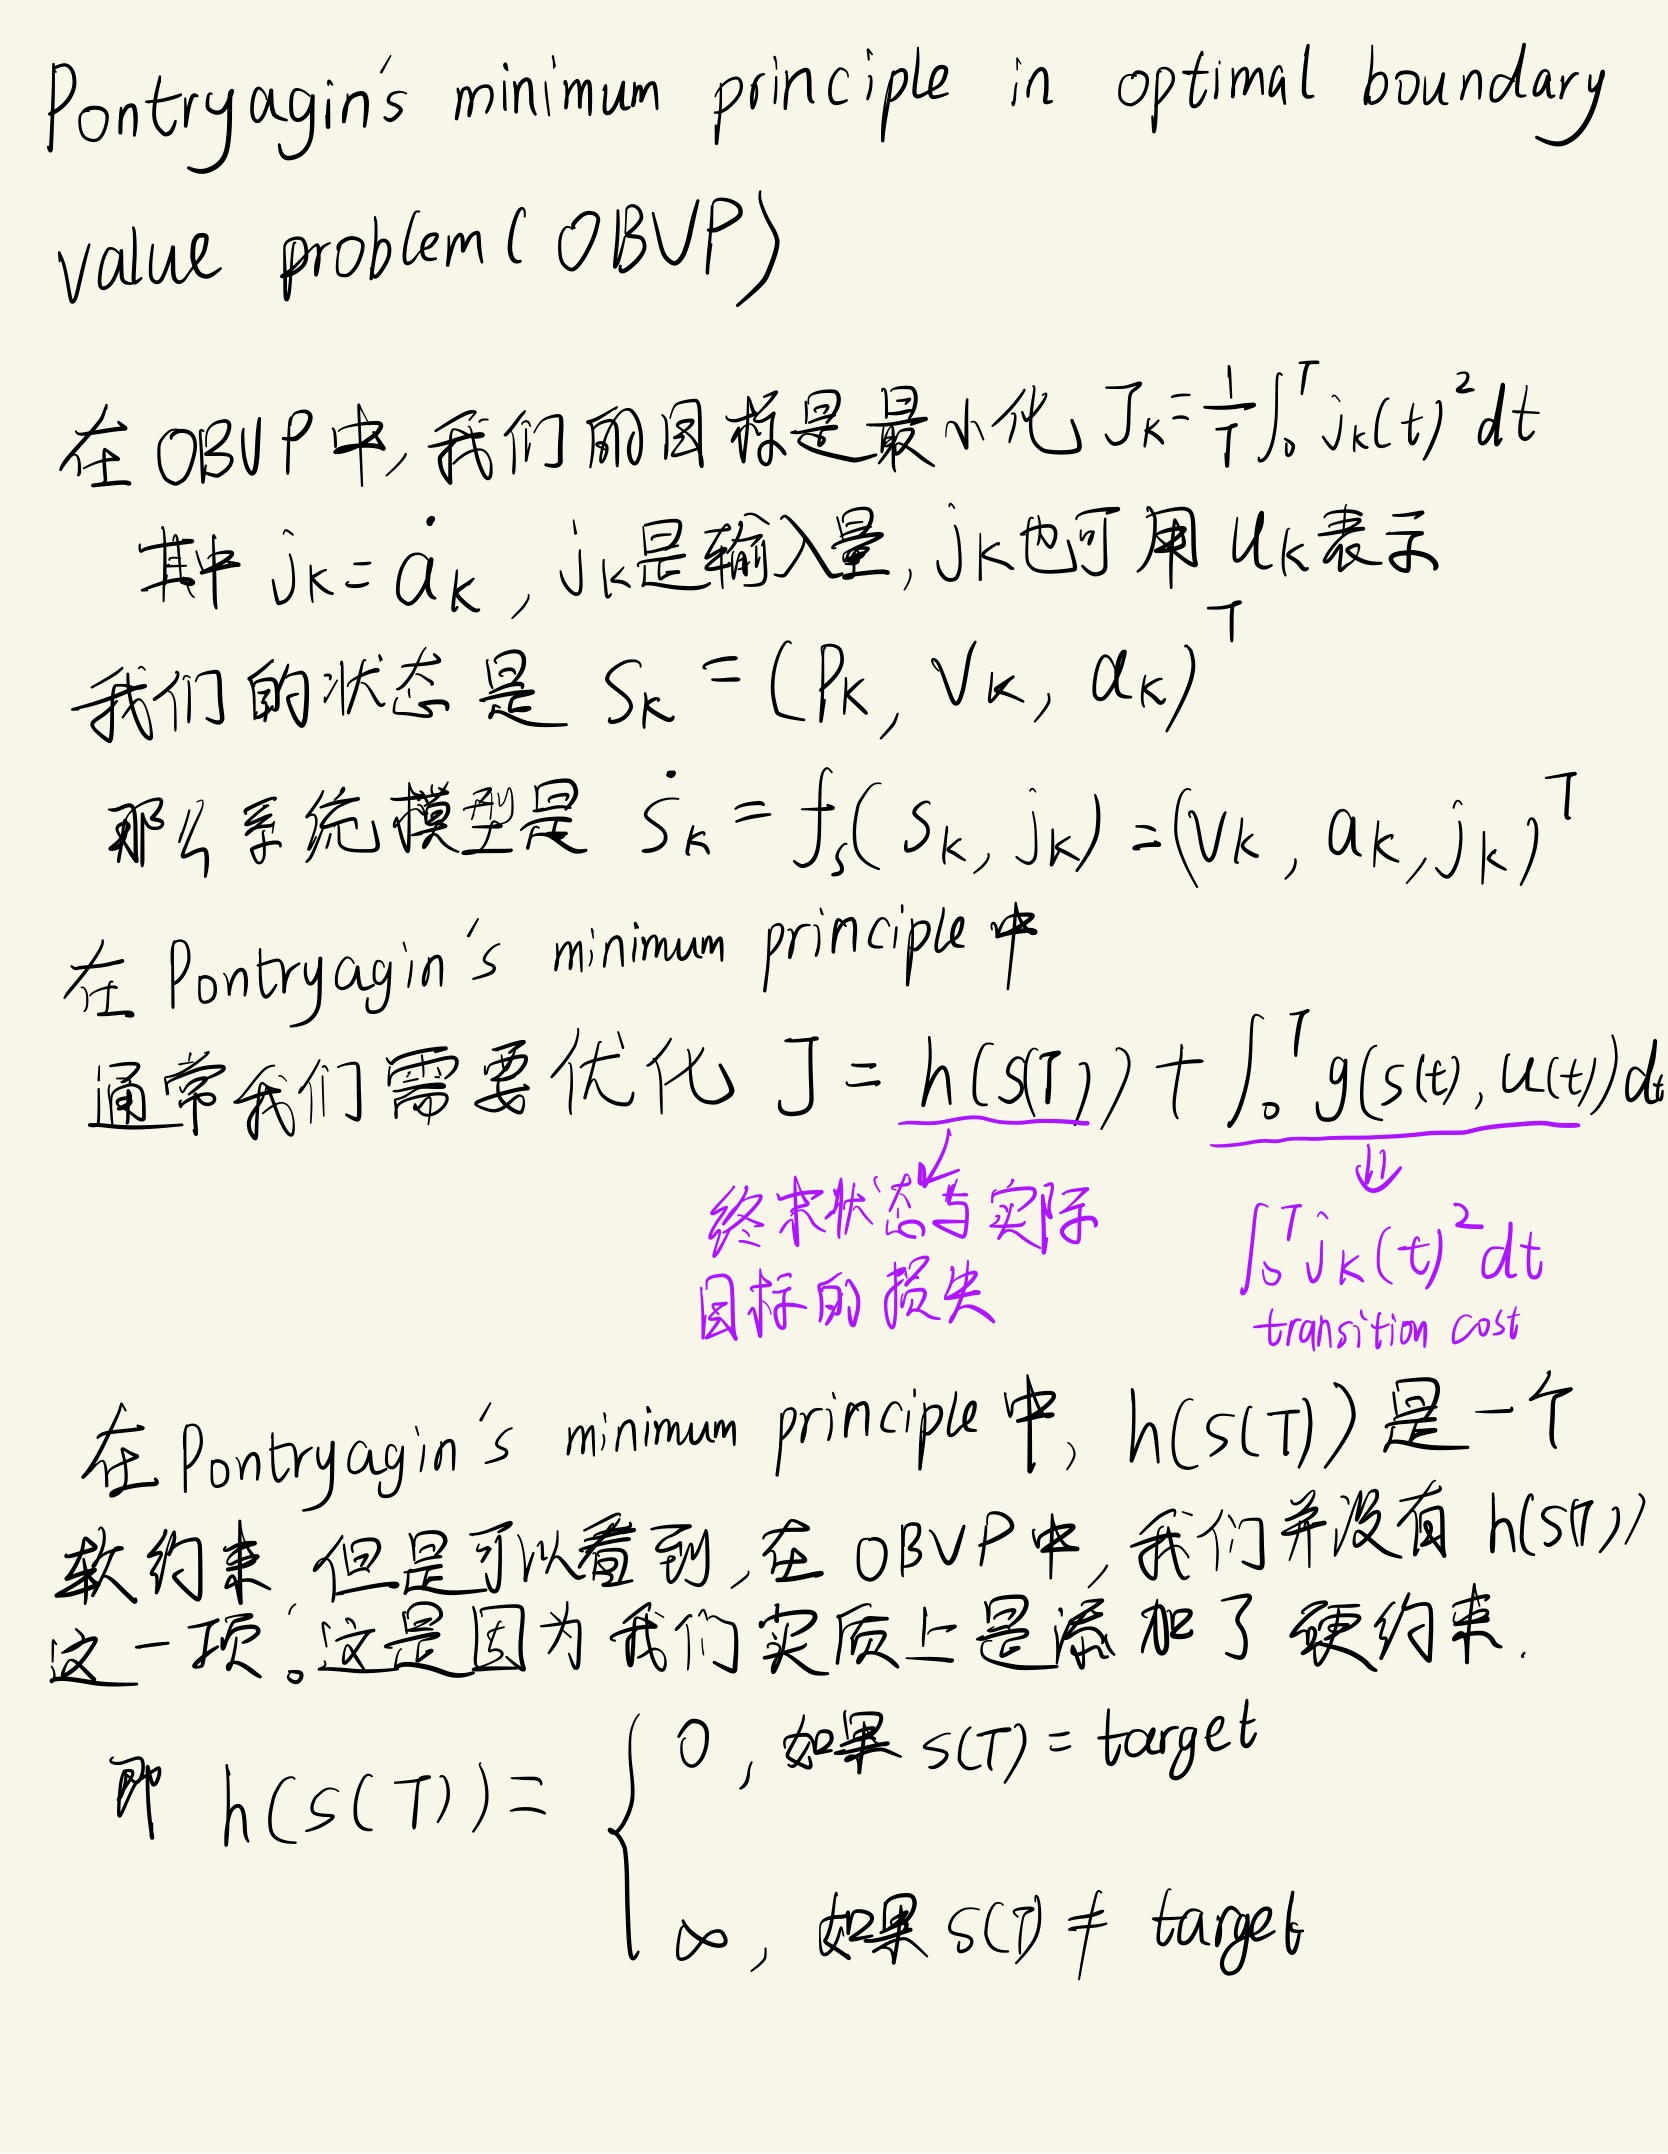 Pontryagin's minimum principle in optimal boundary
value problem(OBVP)
在OBVP中,我们的目标是最小化 J_k = 1/T ∫₀ᵀ j_k(t)² dt
其中 j_k = ȧ_k , j_k是输入量, j_k也可用 u_k表示
我们的状态是 s_k = (p_k, v_k, a_k)ᵀ
那么系统模型是 ṡ_k = f_s(s_k, j_k) = (v_k, a_k, j_k)ᵀ
在 Pontryagin's minimum principle 中
通常我们需要优化 J = h(s(T)) + ∫₀ᵀ g(s(t), u(t)) dt
终末状态与实际
目标的损失
∫₀ᵀ j_k(t)² dt
transition cost
在 Pontryagin's minimum principle 中, h(s(T)) 是一个
软约束 但是可以看到,在 OBVP中,我们并没有 h(s(T))
这一项。这是因为我们实质上是添加了硬约束.
即 h(s(T)) = {
0 , 如果 s(T) = target
∞ , 如果 s(T) ≠ target